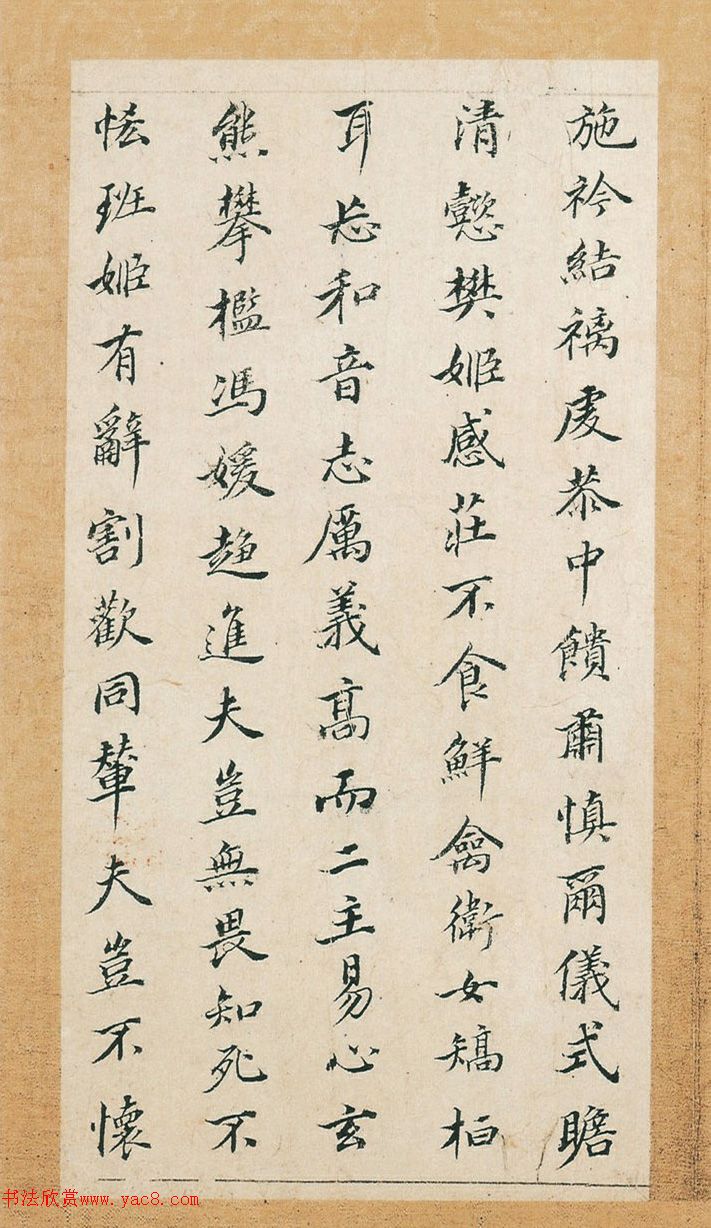 施衿結褵虔恭中饋肅慎爾儀式瞻
清懿樊姬感莊不食鮮禽衛女矯栢
耳忘和音志厲義高而二主易心玄
熊攀檻馮媛趍進夫豈無畏知死不
恡班姬有辭割歡同輦夫豈不懷
书法欣赏www.yac8.com